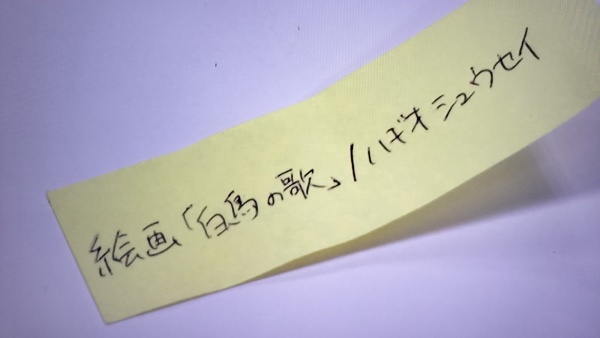 絵画「白鳥の歌」/ハギオシュウセイ